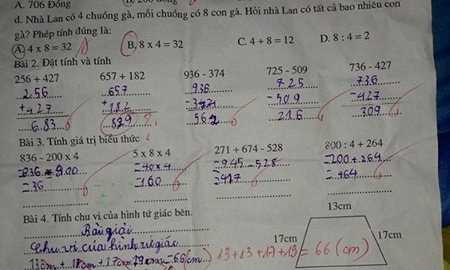 A. 706 Đồng
d. Nhà Lan có 4 chuồng gà, mỗi chuồng có 8 con gà. Hỏi nhà Lan có tất cả bao nhiêu con
gà? Phép tính đúng là:
A. 4 x 8 = 32 B. 8 x 4 = 32 C. 4 + 8 = 12 D. 8 : 4 = 2
Bài 2. Đặt tính và tính
256 + 427 657 + 182 936 - 374 725 - 509 736 - 427
256 657 936 725 736
+427 +182 - - 509 - 427
683 829 562 216 309
Bài 3. Tính giá trị biểu thức
836 - 200 x 4 5 x 8 x 4 271 + 674 - 528 800 : 4 + 264
= 40 x 4 = 945 - 528 = 200 + 264
= 36 = 160 = 417 = 464
Bài 4. Tính chu vi của hình tứ giác bên.
Bài giải
Chu vi của hình tứ giác
13cm
17cm 17cm
= 66 (cm)